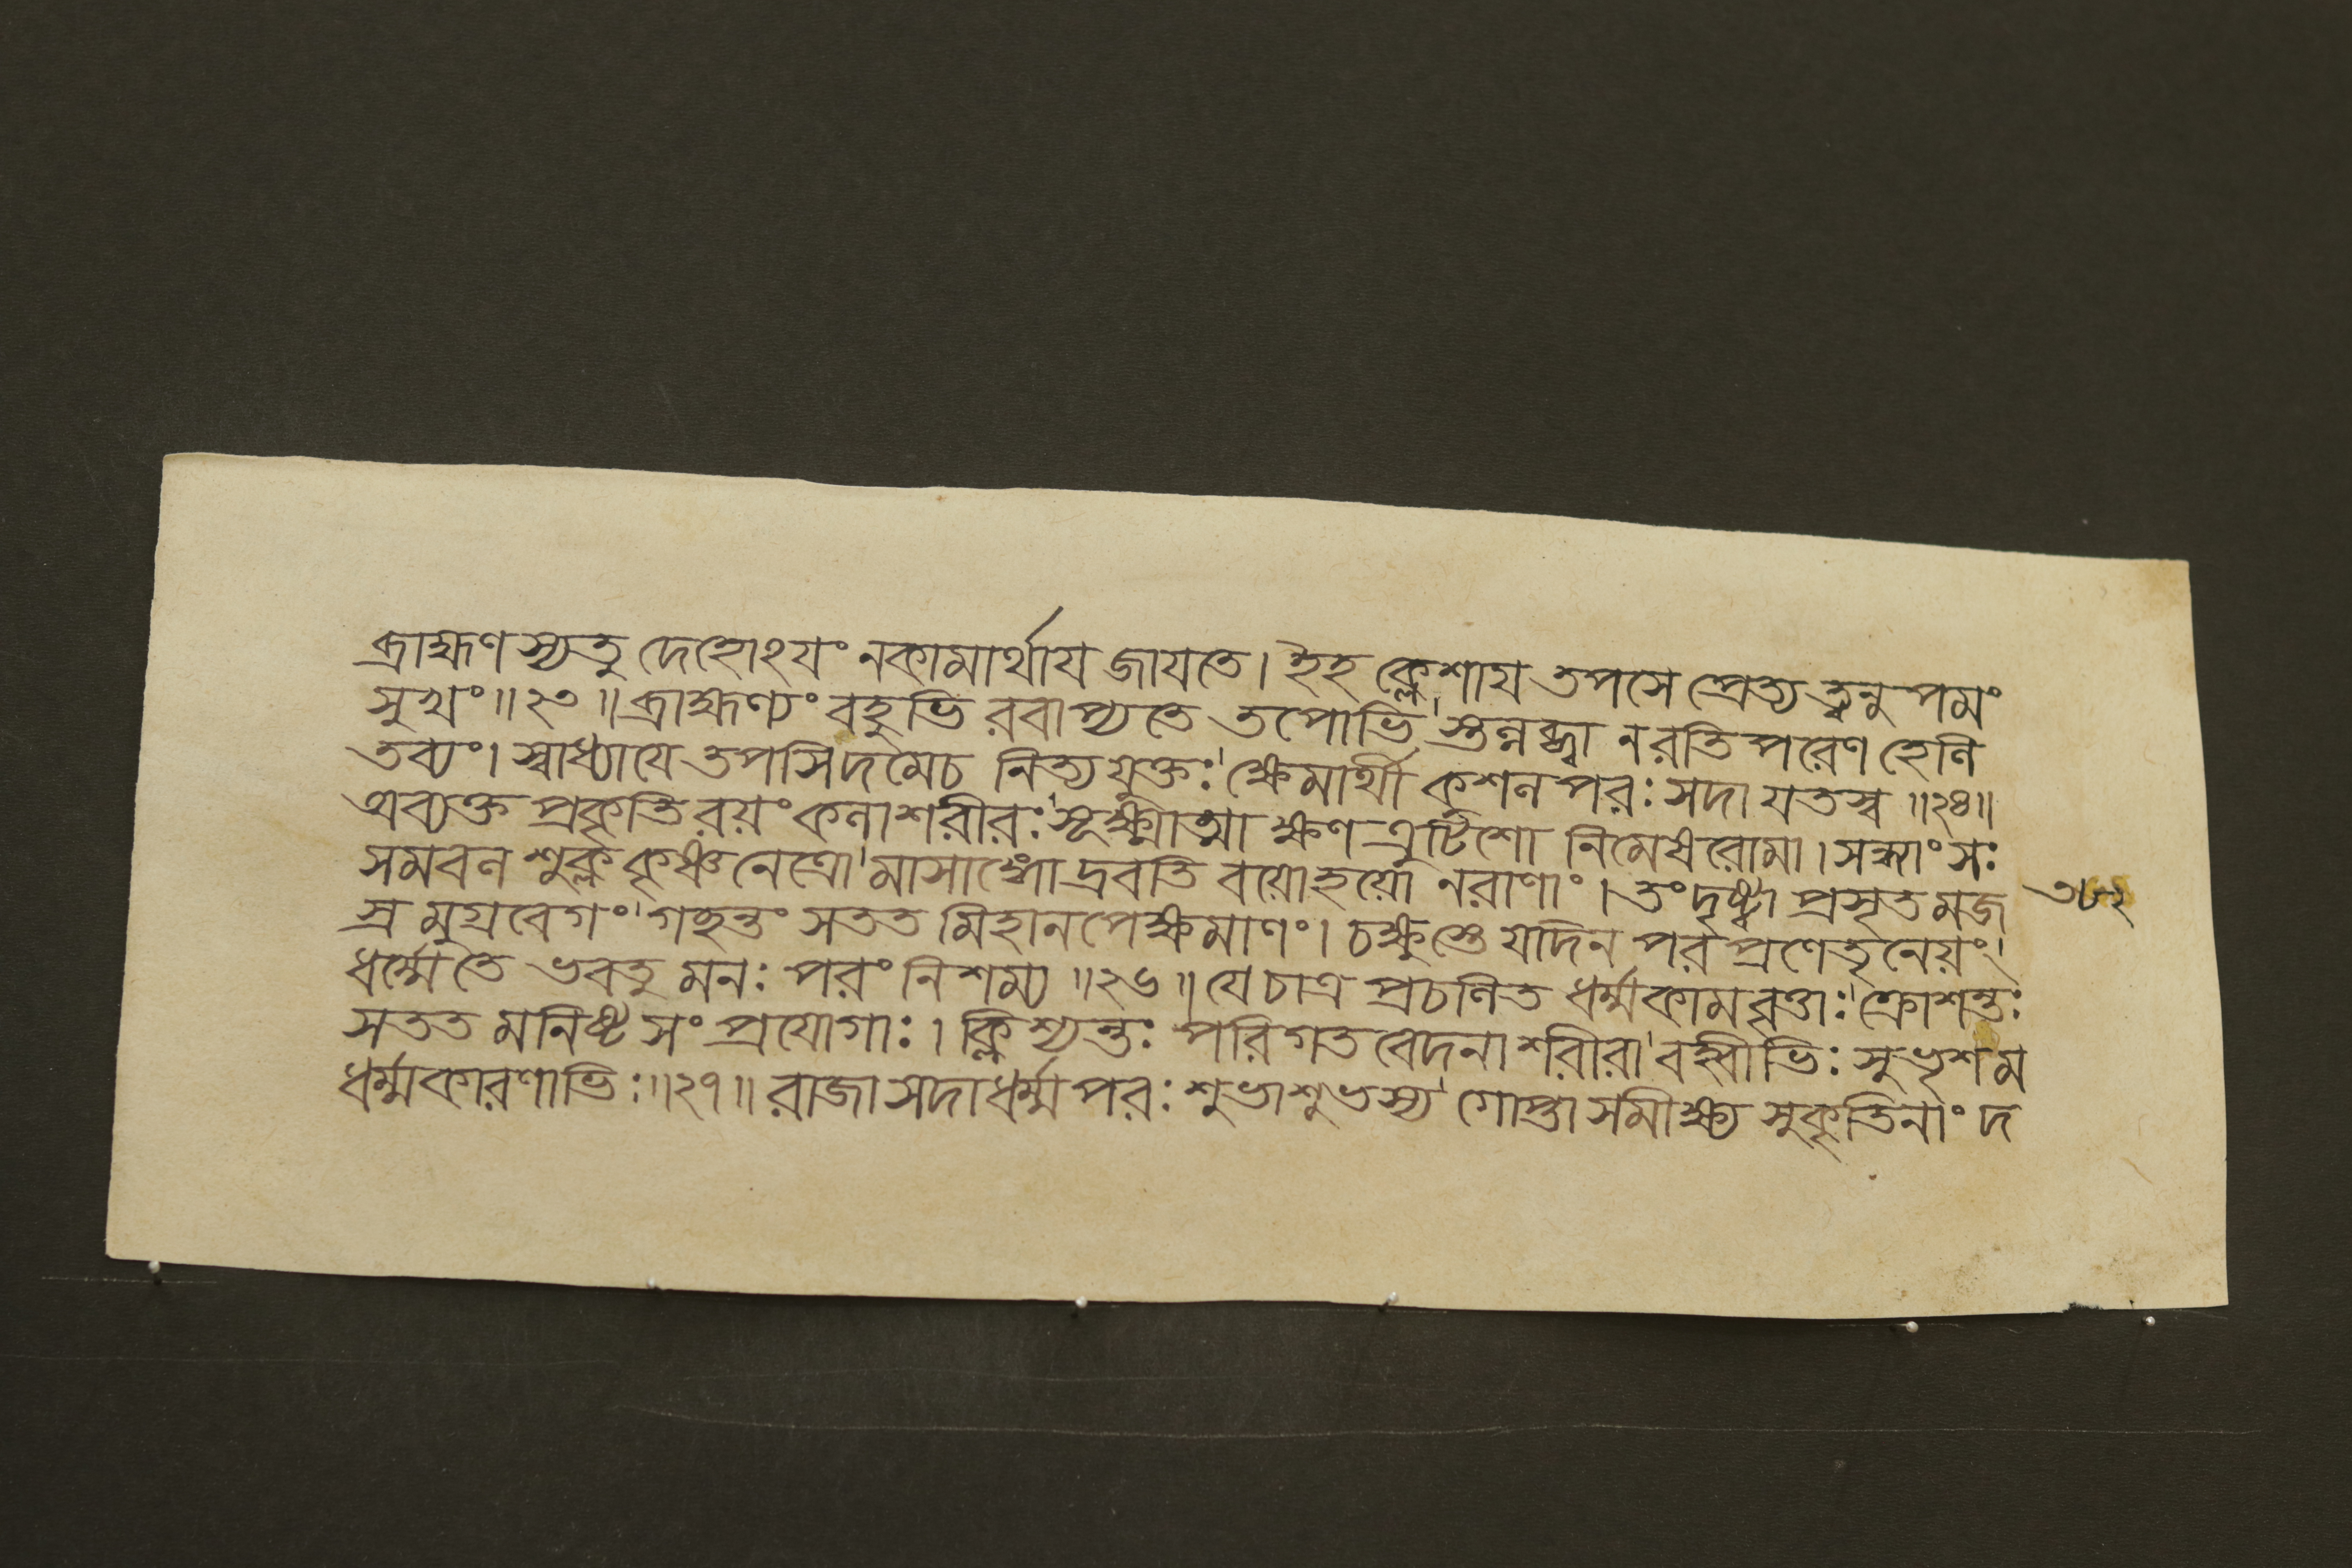 ব্রাহ্মণস্যতু দেহোঽযং নকামার্থায জাযতে। ইহ ক্লেশায তপসে প্রেত্য ত্বনুপমং
সুখং॥২৩॥ব্রাহ্মণ্যং বহুভি রবাপ্যতে তপোভি'স্তন্নব্ধ্বা নরতি পরেণ হেনি
তব্যং। স্বাধ্যাযে তপসিদমেচ নিত্যযুক্তঃ'ক্ষেমার্থী কশনপরঃ সদা যতস্ব ॥২৪॥
অব্যক্ত প্রকৃতিরয়ং কনাশরীরঃ'সূক্ষ্মাত্মা ক্ষণত্রুটিশো নিমেষরোমা। সহ্মাংসঃ
সমবন শুক্লকৃষ্ণনেত্রো'মাসাঙ্গো দ্রবতি বয়োহয়ো নরাণাং। তংদৃষ্ট্বা প্রসৃতমজ
স্রমুগ্রবেগং'গহন্তং সতত মিহানপেক্ষমাণং। চক্ষুস্তে যদিন পরপ্রণেতৃনেয়ং'
ধর্ম্মেতে ভবতু মনঃ পরং নিশম্য ॥২৬॥যেচাত্র প্রচনিত ধর্ম্মকামবৃত্তাঃ'ক্রোশন্তঃ
সতত মনিষ্ট সংপ্রযোগাঃ। ক্লিশ্যন্তঃ পরিগত বেদনাশরীরা'বহ্বীভিঃ সুভৃশম
ধর্ম্মকারণাভিঃ॥২৭॥রাজাসদাধর্ম্মপরঃ শুভাশুভস্য'গোপ্তাসমীক্ষ্য সুকৃতিনাং দ
৩৮২